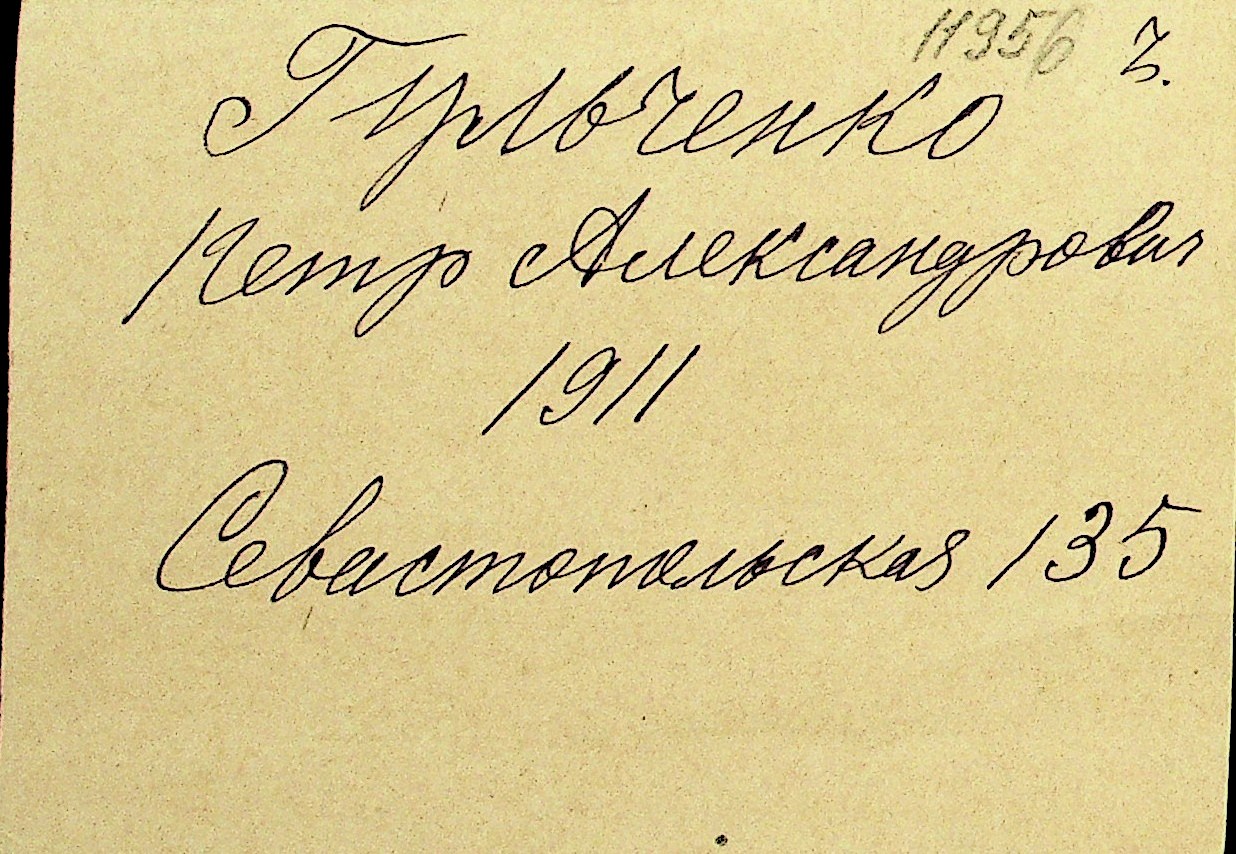 11956 ч.
Гульченко
Петр Александрович
1911
Севастопольская 135